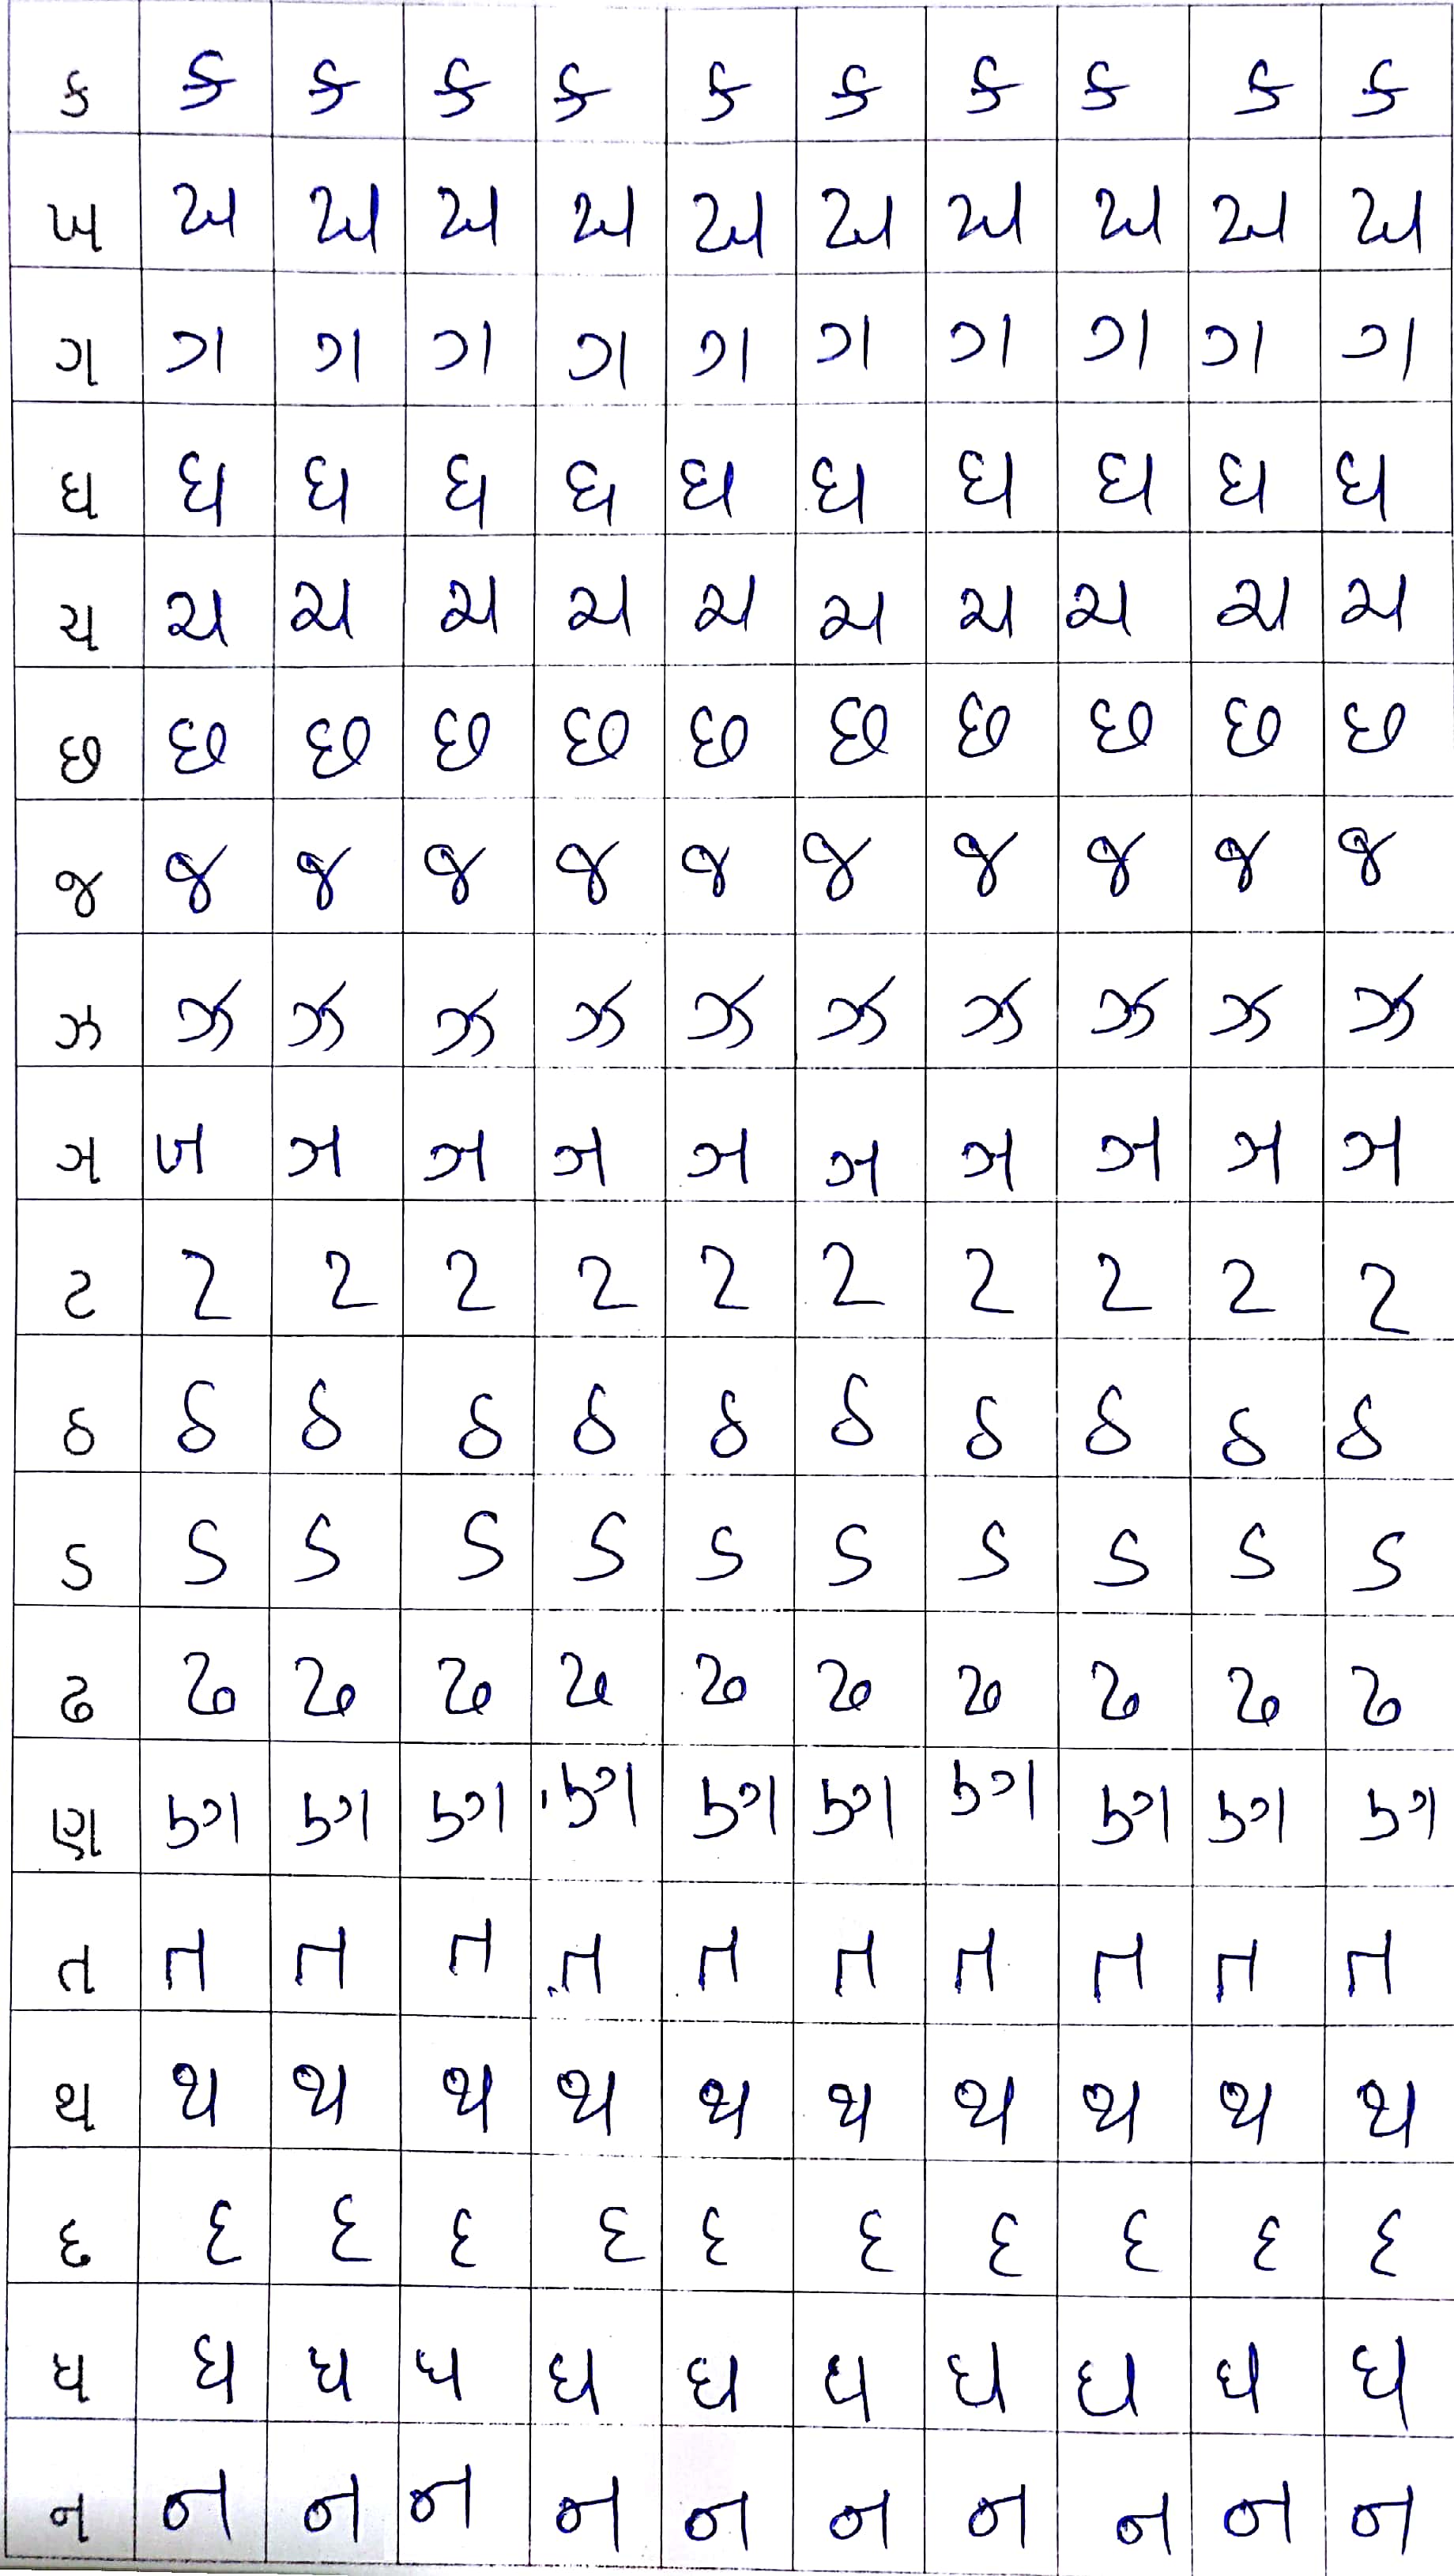 ક ક ક ક ક ક ક ક ક ક ક
ખ ખ ખ ખ ખ ખ ખ ખ ખ ખ ખ
ગ ગ ગ ગ ગ ગ ગ ગ ગ ગ ગ
ઘ ઘ ઘ ઘ ઘ ઘ ઘ ઘ ઘ ઘ ઘ
ચ ચ ચ ચ ચ ચ ચ ચ ચ ચ ચ
છ છ છ છ છ છ છ છ છ છ છ
જ જ જ જ જ જ જ જ જ જ જ
ઝ ઝ ઝ ઝ ઝ ઝ ઝ ઝ ઝ ઝ ઝ
ઞ ઞ ઞ ઞ ઞ ઞ ઞ ઞ ઞ ઞ ઞ
ટ ટ ટ ટ ટ ટ ટ ટ ટ ટ ટ
ઠ ઠ ઠ ઠ ઠ ઠ ઠ ઠ ઠ ઠ ઠ
ડ ડ ડ ડ ડ ડ ડ ડ ડ ડ ડ
ઢ ઢ ઢ ઢ ઢ ઢ ઢ ઢ ઢ ઢ ઢ
ણ ણ ણ ણ ણ ણ ણ ણ ણ ણ ણ
ત ત ત ત ત ત ત ત ત ત ત
થ થ થ થ થ થ થ થ થ થ થ
દ દ દ દ દ દ દ દ દ દ દ
ધ ધ ધ ધ ધ ધ ધ ધ ધ ધ ધ
ન ન ન ન ન ન ન ન ન ન ન